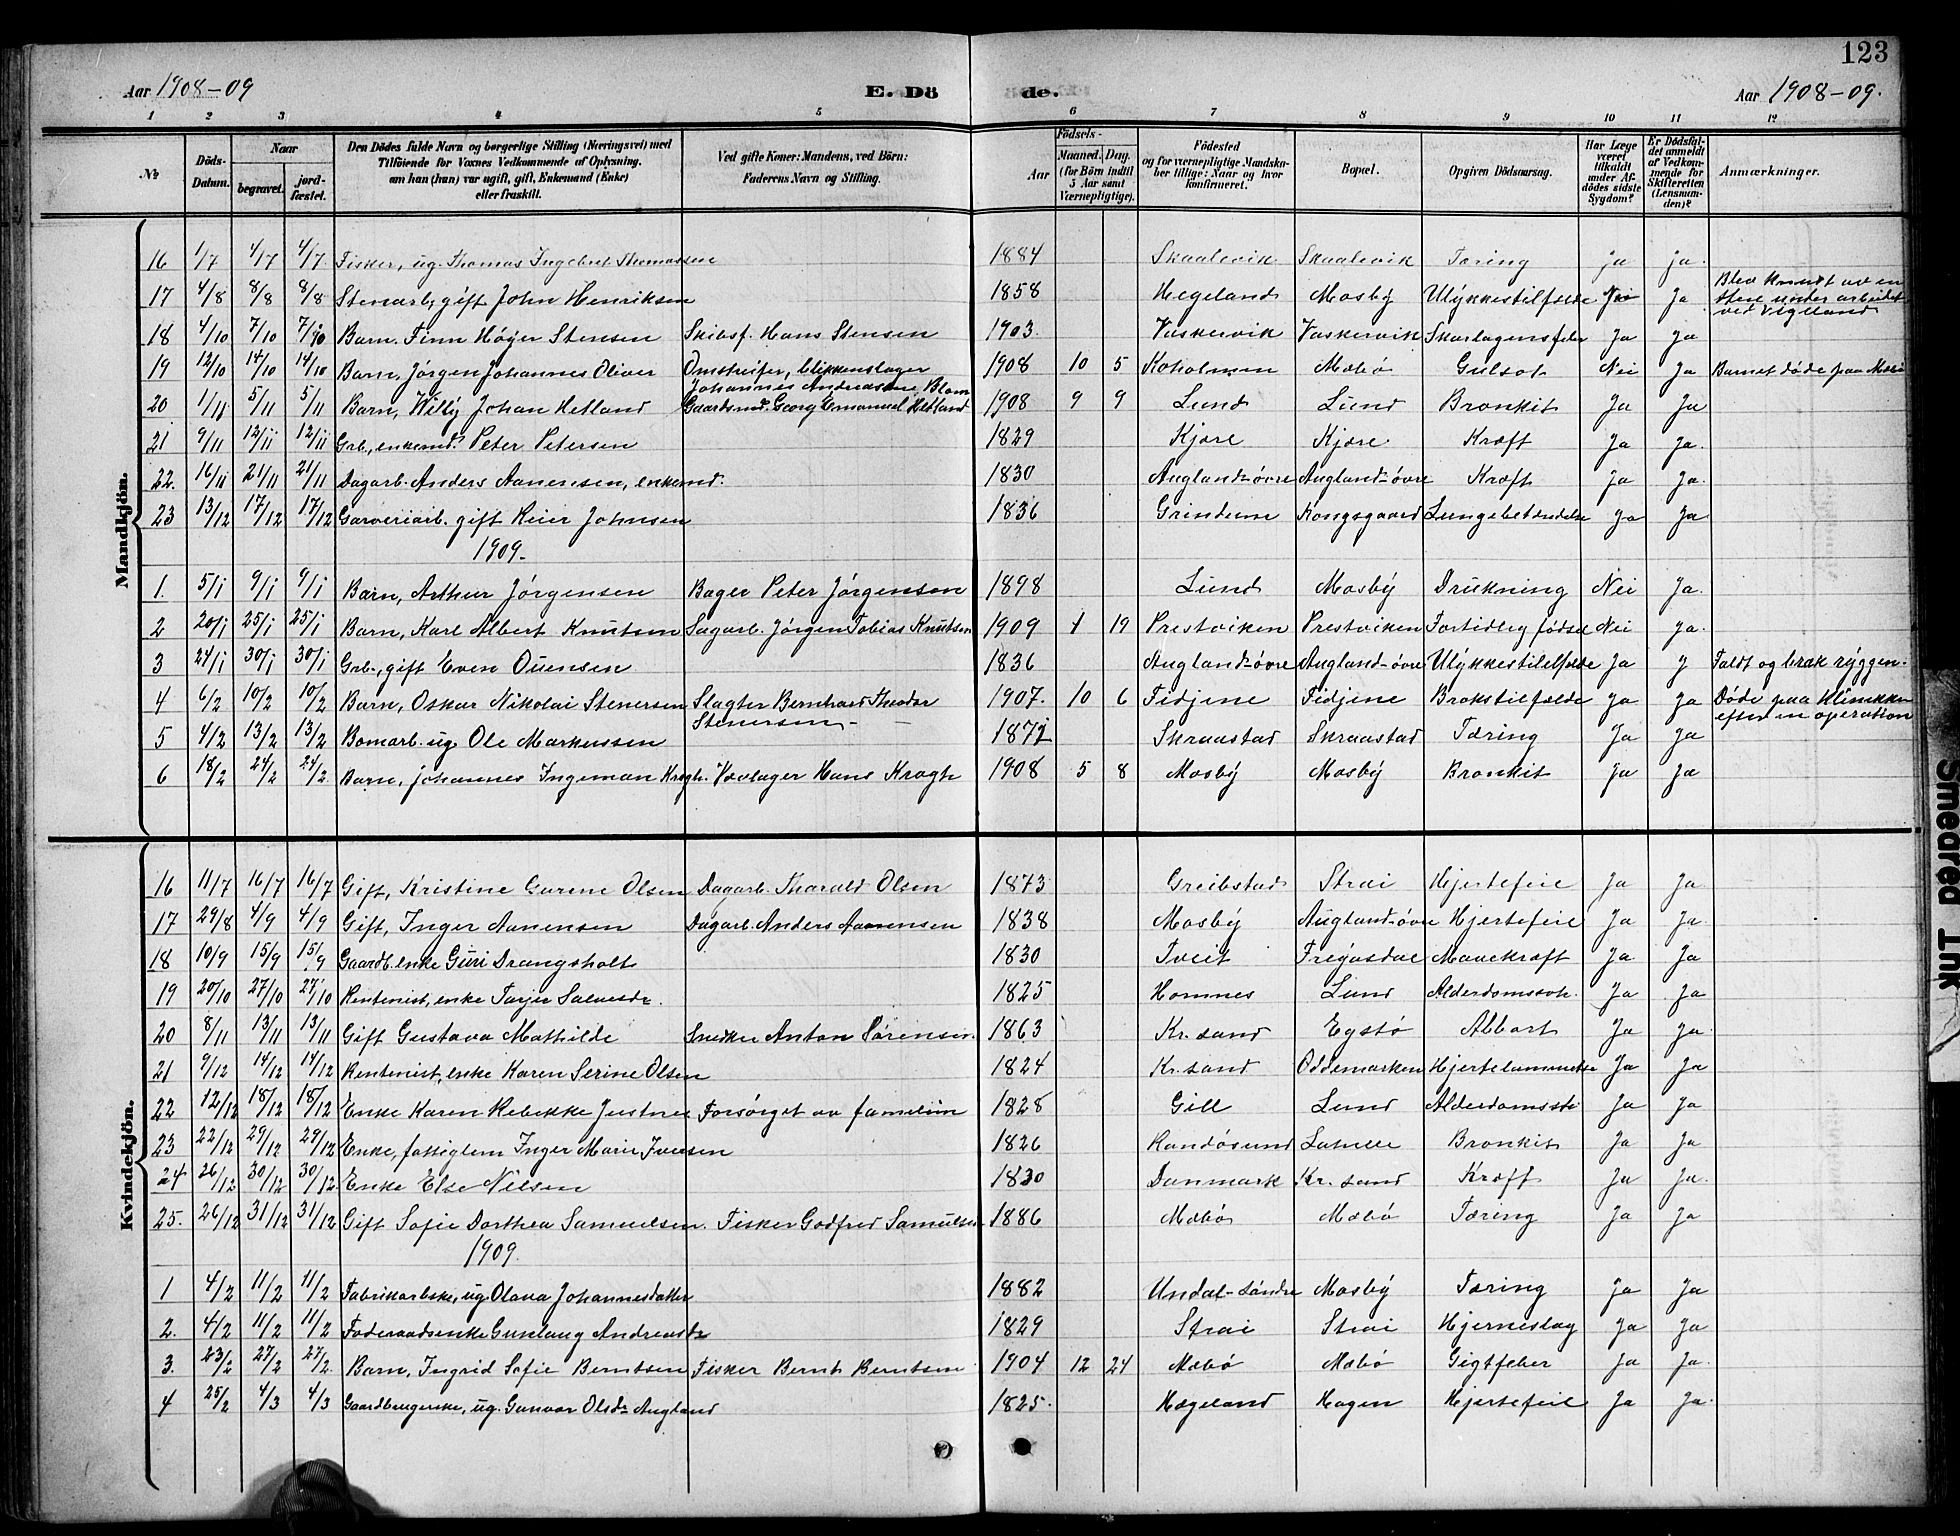 123
Aar 1908-09 E. Dö de. Aar 1908-09.
1 2 3 4 5 6 7 8 9 10 11 12
№ Döds-Datum. Naar begravet. jord-fæstet. Den Dödes fulde Navn og borgerlige Stilling (Næringsvei) med Tilföiende for Voxnes Vedkommende af Oplysning, om han (hun) var ugift, gift, Enkemand (Enke) eller fraskilt. Ved gifte Koner: Mandens, ved Börn: Faderens Navn og Stilling. Födsels- Aar Maaned. Dag. (for Börn indtil 5 Aar samt Værnepligtige). Födested og for værnepligtige Mandskaber tillige: Naar og hvor konfirmeret. Bopæl. Opgiven Dödsaarsag. Har Læge været tilkaldt under Afdödes sidste Sygdom? Er Dödsfaldet anmeldt af Vedkommende for Skifteretten (Lensmanden)? Anmærkninger.
Mandkjön.
16 1/7 4/7 4/7 Fisker, ug. Thomas Ingebret Thomassen 1884 Skaalevik Skaalevik Tæring ja ja.
17 4/8 8/8 8/8 Stenarb, gift John Henriksen 1858 Hegeland Mosby Ulykkestilfælde Nei Ja Blev knust av en sten under arbeidet ved Vigeland
18 4/10 7/10 7/10 Barn. Finn Höyer Stensen Skibsf. Hans Stensen 1903. Vaskervik Vaskervik Skarlagensfeber Ja Ja
19 12/10 14/10 14/10 Barn, Jörgen Johannes Oliver Omstreifer, blikkenslager Johannes Andreassen Blom 1908 10 5 Koholmen Mæbö Gulsot Nei Ja Barnet döde paa Mæbö
20 1/11 5/11 5/11 Barn, Willy Johan Hetland Gaardsmd. Georg Emanuel Hetland 1908 9 9 Lund Lund Bronkit Ja Ja
21 9/11 12/11 12/11 Grb., enkemd. Peter Petersen 1829 Kjære Kjære Kræft Ja Ja.
22. 16/11 21/11 21/11 Dagarb. Anders Aanensen, enkemd. 1830 Augland-övre Augland-övre Kræft Ja Ja.
23 13/12 17/12 17/12 Garveriarb. gift Reier Johnsen 1836 Grindum Kongsgaard Lungebetændelse Ja Ja.
1909.
1. 5/1 9/1 9/1 Barn, Arthur Jörgensen Bager Peter Jörgensen 1898 Lund Mosby Drukning Nei Ja.
2 20/1 25/1 25/1 Barn, Karl Albert Knutsen Sagarb. Jörgen Tobias Knutsen 1909 1 19 Prestviken Prestviken Fortidleg födsel Nei ja.
3 24/1 30/1 30/1 Grb., gift Even Ouensen 1836 Augland-övre Augland-övre Ulykkestilelfælde Ja J Faldt og brak ryggen.
4 6/2 10/2 10/2 Barn, Oskar Nikolai Stenersen Slagter Bernhard Theodor Stenersen 1907. 10 6 Fidjene Fidjene Brokstilfælde Ja Ja Döde paa klinikken efter en operation
5 4/2 13/2 13/2 Bomarb. ug. Ole Markussen 1871 Skraastad Skraastad Tæring Ja Ja
6 18/2 24/2 24/2 Barn, Johannes Ingeman Krogh. Hans Krogh 1908 5 8 Mosby Mosby Bronkit Ja Ja
Kvindekjön.
16 11/7 16/7 16/7 Gift, Kristine Gurene Olsen Dagarb. Tharald Olsen 1873 Greibstad Strai Hjertefeil Ja Ja.
17 29/8 4/9 4/9 Gift, Inger Aanensen Dagarb. Anders Aanensen 1838 Mosby Augland-övre Hjertefeil Ja Ja.
18 10/9 15/9 15/9 Gaardb. enke Guri Drangsholt 1830 Tveit Frigasdal Mavekræft Ja Ja
19 20/10 27/10 27/10 Rentenist, enke Tarjer Salvesdr. 1825 Homnes Lund Alderdomssv. Ja Ja
20 8/11 13/11 13/11 Gift Gustava Mathilde Snedker Anton Sörensen. 1863 Kr.sand Egstö Abbort Ja Ja.
21 9/12 14/12 14/12 Rentenist, enke Karen Serine Olsen 1824 Kr.sand Oddemarken Hjertelammelse Ja Ja
22 12/12 18/12 18/12 Enke Karen Rebekke Justnes Forsörget av familien 1828 Gill Lund Alderdomssv. Ja Ja
23 22/12 29/12 29/12 Enke, fattiglem Inger Marie Iversen 1826 Randösund Bronkit Ja Ja
24 26/12 30/12 30/12 Enke Else Nilsen 1830 Danmark Kr. sand Kræft Ja Ja
25. 26/12 31/12 31/12 Gift Sofie Dorthea Samuelsen. Fisker Godfred Samuelsen 1886 Mæbö Mæbö Tæring Ja Ja
1909.
1 4/2 11/2 11/2 Fabrikarbske, ug. Olava Johannesdatter 1882 Undal-söndre Mosby Tæring ja Ja
2. 4/2 11/2 11/2 Föderaadsenke Gunlaug Andreasdr 1829 Strai Strai Hjerneslag Ja Ja
3. 23/2 27/2 27/2. Barn, Ingrid Sofie Berntsen Fisker Bernt Berntsen 1904 12 24 Mæbö Mæbö Gigtfeber Ja Ja.
4 25/2 4/3 4/3 Gaardbrugerske, ug. Gunvor Olsdr Augland 1825. Hægeland Hagen Hjertefeil Ja Ja.
Smeared Ink